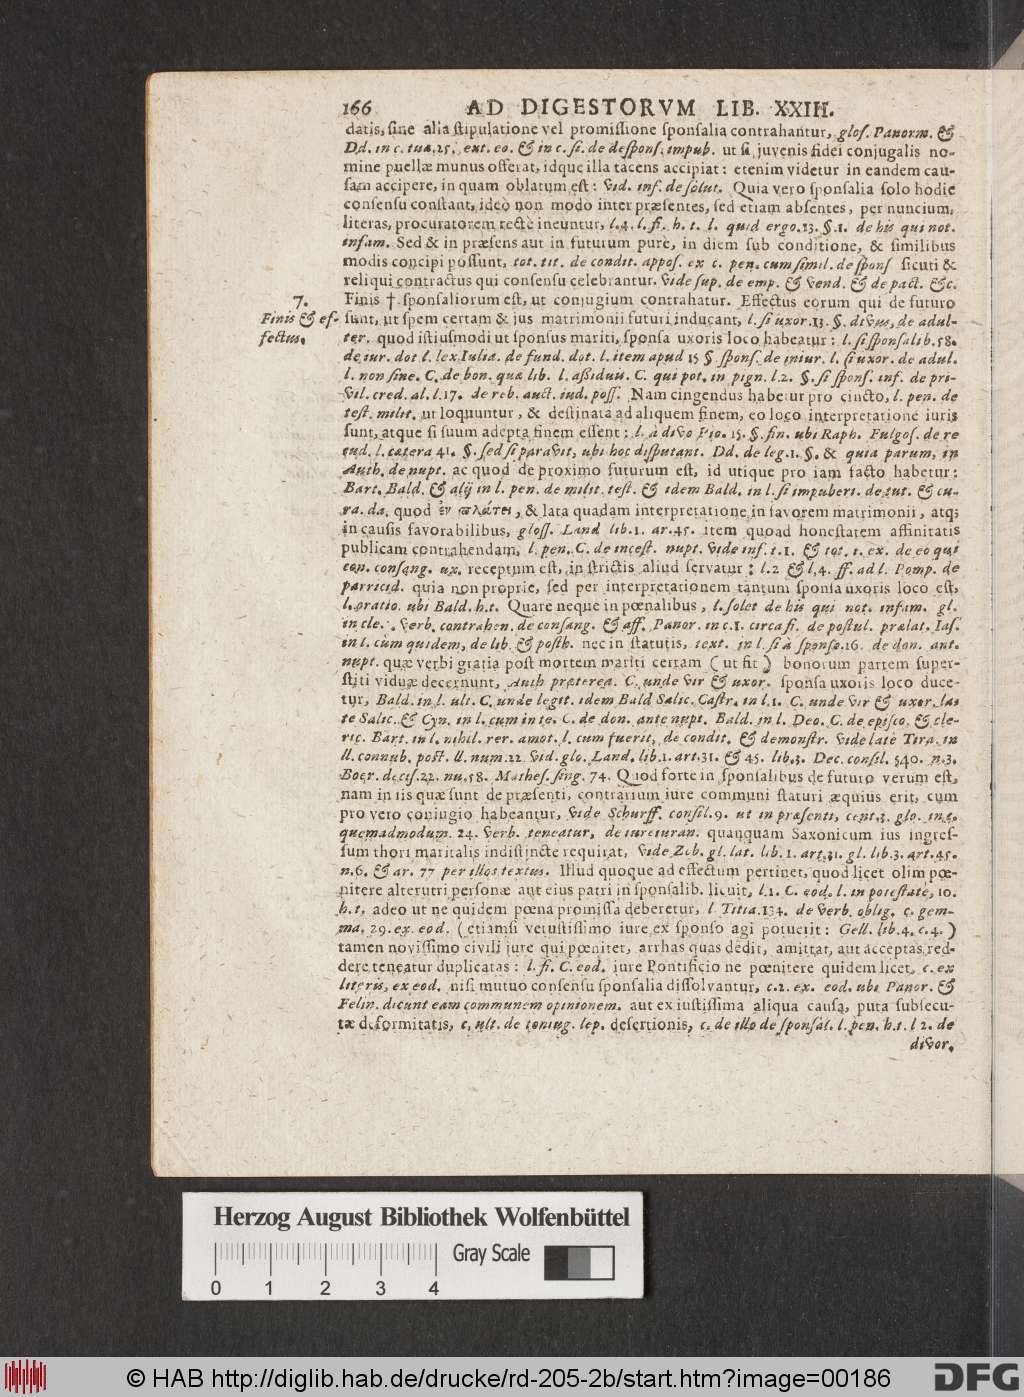 166 AD DIGESTORVM LIB. XXIII.
datis, sine alia stipulatione vel promissione sponsalia contrahantur, glos. Panorm. &
Dd. in c. tua. 25. ext. eo. & in c. si. de despons. impub. ut si juvenis fidei conjugalis no-
mine puellæ munus offerat, idque illa tacens accipiat: etenim videtur in eandem cau-
sam accipere, in quam oblatum est: vid. inf. de solut. Quia vero sponsalia solo hodie
consensu constant, ideo non modo inter præsentes, sed etiam absentes, per nuncium,
literas, procuratorem recte ineuntur, l. 4. l. fi. h. t. l. quid ergo. 13. §. 1. de his qui not.
infam. Sed & in præsens aut in futurum pure, in diem sub conditione, & similibus
modis concipi possunt, tot. tit. de condit. appos. ex c. pen. cum simil. de spons sicuti &
reliqui contractus qui consensu celebrantur. vide sup. de emp. & vend. & de pact. &c.
7.
Finis & ef-
fectus.
Finis † sponsaliorum est, ut conjugium contrahatur. Effectus eorum qui de futuro
sunt, ut spem certam & jus matrimonii futuri inducant, l. si uxor. 13. §. divus, de adul-
ter. quod istiusmodi ut sponsus mariti, sponsa uxoris loco habeatur: l. si sponsalib. 58.
de iur. dot l. lex Iulia. de fund. dot. l. item apud 15 §. spons. de iniur. l. si uxor. de adul.
l. non sine. C. de bon. quæ lib. l. assiduis. C. qui pot. in pign. l. 2. §. si spons. inf. de pri-
vil. cred. al. l. 17. de reb. auct. iud. poss. Nam cingendus habetur pro cincto, l. pen. de
test. milit. ut loquuntur, & destinata ad aliquem finem, eo loco interpretatione iuris
sunt, atque si suum adepta finem essent: l. à divo Pio. 15. §. fin. ubi Raph. Fulgos. de re
iud. l. cætera 41. §. sed si paravit, ubi hoc disputant. Dd. de leg. 1. §. & quia parum, in
Auth. de nupt. ac quod de proximo futurum est, id utique pro iam facto habetur:
Bart. Bald. & alij in l. pen. de milit. test. & idem Bald. in l. si impuberi. de tut. & cu-
ra. da. quod ἐν πλάτει, & lata quadam interpretatione in favorem matrimonii, atq;
in causis favorabilibus, gloss. Land lib. 1. ar. 45. item quoad honestatem affinitatis
publicam contrahendam, l. pen. C. de incest. nupt. vide inf. t. 1. & tot. t. ex. de eo qui
con. consang. ux. receptum est, in strictis aliud servatur: l. 2 & l. 4. ff. ad l. Pomp. de
parricid. quia non proprie, sed per interpretationem tantum sponsa uxoris loco est,
l. oratio. ubi Bald. h. t. Quare neque in pœnalibus, l. solet de his qui not. infam. gl.
in cle. . verb. contrahen. de consang. & aff. Panor. in c. 1. circa fi. de postul. prælat. Ias.
in l. cùm quidem, de lib. & posth. nec in statutis, text. in l. si à sponso. 16. de don. ant.
nupt. quæ verbi gratia post mortem mariti certam (ut fit) bonorum partem super-
stiti viduæ decernunt, Auth præterea. C. unde vir & uxor. sponsa uxoris loco duce-
tur, Bald. in l. ult. C. unde legit. idem Bald Salic. Castr. in l. 1. C. unde vir & uxor. la-
te Salic. & Cyn. in l. cum in te. C. de don. ante nupt. Bald. in l. Deo. C. de episco. & cle-
ric. Bart. in l. nihil. rer. amot. l. cum fuerit, de condit. & demonstr. vide latè Tira. in
ll. connub. post. ll. num. 22 vid. glo. Land. lib. 1. art. 31. & 45. lib. 3. Dec. consil. 540. n. 3.
Boer. decis. 22. nu. 58. Mathes. sing. 74. Quod forte in sponsalibus de futuro verum est,
nam in iis quæ sunt de præsenti, contrarium iure communi staturi æquius erit, cum
pro vero coniugio habeantur, vide Schurff. consil. 9. ut in præsenti, cent. 3. glo. in c.
quemadmodum. 24. verb. teneatur, de iureiuran. quanquam Saxonicum ius ingres-
sum thori maritalis indistincte requirat, vide Zob. gl. lat. lib. 1. art. 31. gl. lib. 3. art. 45.
n. 6. & ar. 77 per illos textus. Illud quoque ad effectum pertinet, quod licet olim pœ-
nitere alterutri personæ aut eius patri in sponsalib. licuit, l. 1. C. eod. l. in potestate, 10.
h. t. adeo ut ne quidem pœna promissa deberetur, l Titia. 134. de verb. oblig. c. gem-
ma. 29. ex. eod. (etiamsi vetustissimo iure ex sponso agi potuerit: Gell. lib. 4. c. 4.)
tamen novissimo civili jure qui pœnitet, arrhas quas dedit, amittat, aut acceptas red-
dere teneatur duplicatas: l. fi. C. eod. iure Pontificio ne pœnitere quidem licet, c. ex
literis, ex eod. nisi mutuo consensu sponsalia dissolvantur, c. 2. ex. eod. ubi Panor. &
Felin. dicunt eam communem opinionem. aut ex iustissima aliqua causa, puta subsecu-
tæ deformitatis, c. ult. de coniug. lep. desertionis, c. de illo de sponsal. l. pen. h. t. l 2. de
divor.
Herzog August Bibliothek Wolfenbüttel
Gray Scale
0 1 2 3 4
© HAB http://diglib.hab.de/drucke/rd-205-2b/start.htm?image=00186
DFG